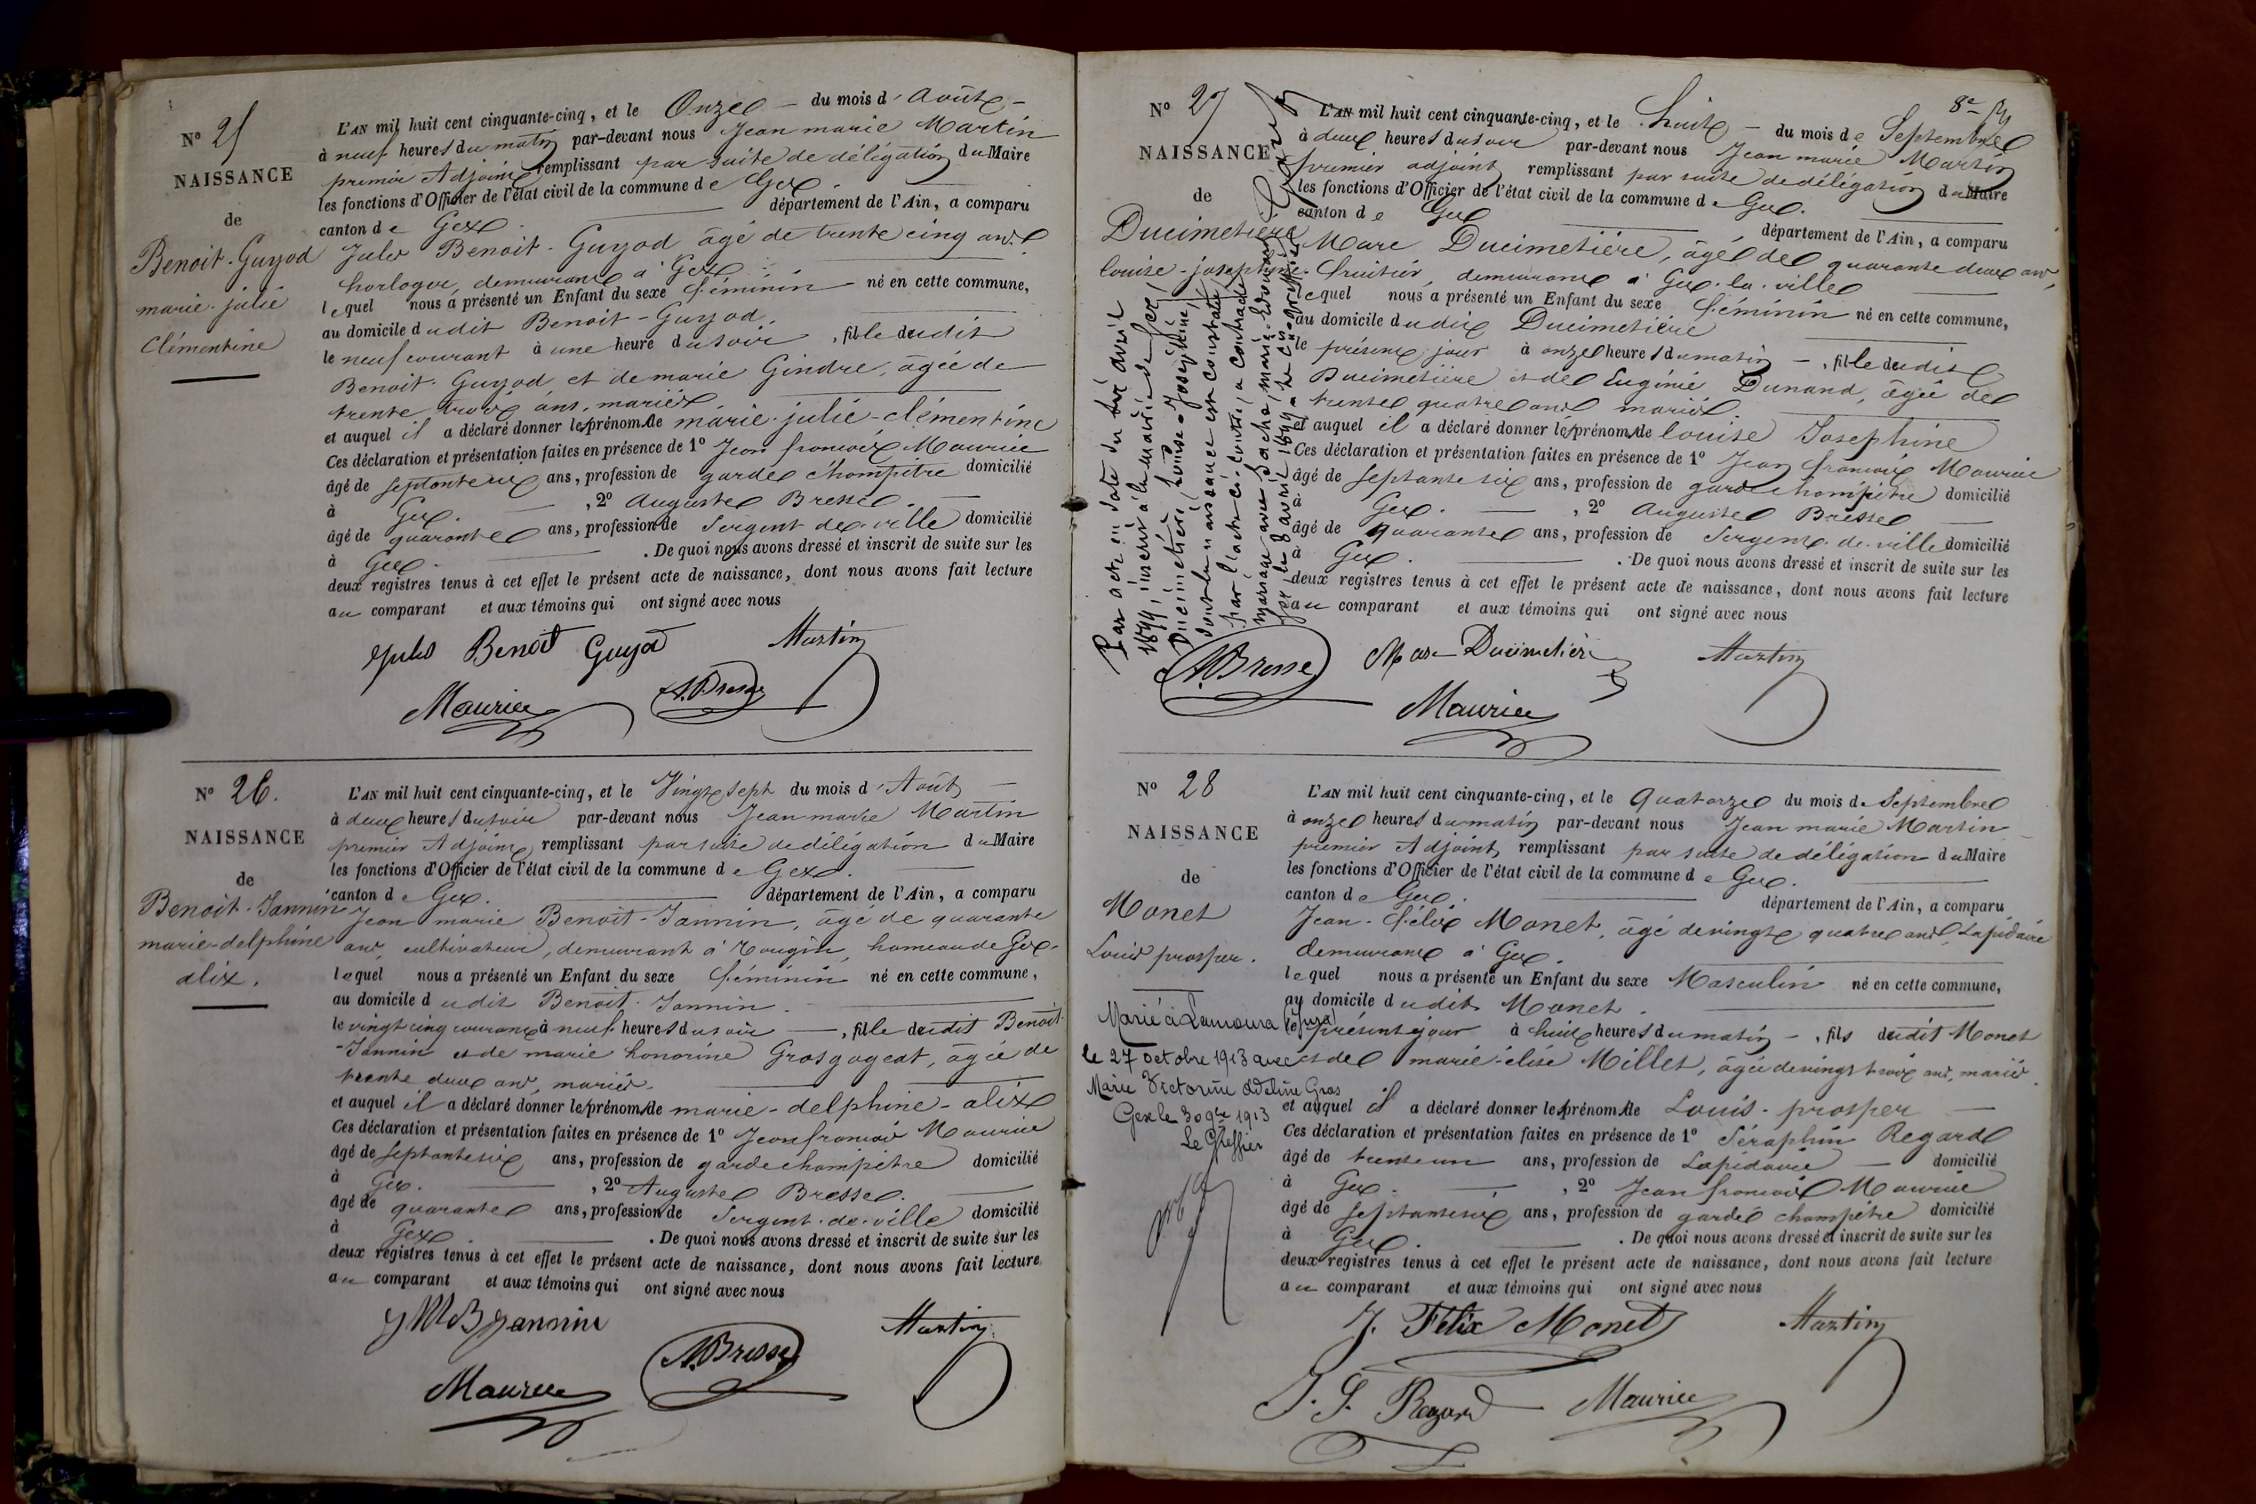 N° 25
NAISSANCE
de
Benoit-Guyod
marie-julie
Clémentine
L'AN mil huit cent cinquante-cinq, et le Onze — du mois d'Août —
à neuf heures du matin par-devant nous Jean marie Martin
premier Adjoint remplissant par suite de délégation du Maire
les fonctions d'Officier de l'état civil de la commune de Gex.
canton de Gex. département de l'Ain, a comparu
Jules Benoit-Guyod âgé de trente cinq ans
horloger, demeurant à Gex
lequel nous a présenté un Enfant du sexe féminin né en cette commune,
au domicile dudit Benoit-Guyod.
le neuf courant à une heure du soir, fille dudit
Benoit-Guyod et de marie Gindre, âgée de
trente trois ans, mariés
et auquel il a déclaré donner les prénoms de marie-julie-clémentine
Ces déclaration et présentation faites en présence de 1° Jean françois Maurice
âgé de septante six ans, profession de garde champêtre domicilié
à Gex. — , 2° Auguste Bresse. —
âgé de quarante ans, profession de Sergent de ville domicilié
à Gex. — . De quoi nous avons dressé et inscrit de suite sur les
deux registres tenus à cet effet le présent acte de naissance, dont nous avons fait lecture
au comparant et aux témoins qui ont signé avec nous
Jules Benoit Guyod Martin
Maurice A. Bresse
N° 26.
NAISSANCE
de
Benoit-Jannin
marie-delphine
alix.
L'AN mil huit cent cinquante-cinq, et le Vingt sept du mois d'Août —
à deux heures du soir par-devant nous Jean marie Martin
premier Adjoint remplissant par suite de délégation du Maire
les fonctions d'Officier de l'état civil de la commune de Gex.
canton de Gex. département de l'Ain, a comparu
Jean marie Benoit-Jannin, âgé de quarante
ans, cultivateur, demeurant à Tougin, hameau de Gex.
lequel nous a présenté un Enfant du sexe féminin né en cette commune,
au domicile dudit Benoit-Jannin.
le vingt cinq courant à neuf heures du soir —, fille dudit Benoit
-Jannin et de marie honorine Grosgogeat, âgée de
trente deux ans, mariés.
et auquel il a déclaré donner les prénoms de marie-delphine-alix
Ces déclaration et présentation faites en présence de 1° Jean françois Maurice
âgé de septante six ans, profession de garde champêtre domicilié
à Gex. — , 2° Auguste Bresse. —
âgé de quarante ans, profession de Sergent-de-ville domicilié
à Gex. — . De quoi nous avons dressé et inscrit de suite sur les
deux registres tenus à cet effet le présent acte de naissance, dont nous avons fait lecture
au comparant et aux témoins qui ont signé avec nous
J M B Jannin Martin
Maurice A. Bresse
8e
N° 27
NAISSANCE
de
Ducimetière
louise-josephine
Par acte en date du huit avril
1899, inscrit à la mairie de Gex,
Ducimetière, Louise-Joséphine,
dont la naissance est constatée
par l'acte ci-contre, a contracté
mariage avec Sache, marie-Edouard
Gex le 8 avril 1899. Le Greffier
L'AN mil huit cent cinquante-cinq, et le huit — du mois de Septembre
à deux heures du soir par-devant nous Jean marie Martin
premier adjoint remplissant par suite de délégation du Maire
les fonctions d'Officier de l'état civil de la commune de Gex.
canton de Gex département de l'Ain, a comparu
Marc Ducimetière, âgé de quarante deux ans,
huitier, demeurant à Gex-la-ville
lequel nous a présenté un Enfant du sexe féminin né en cette commune,
au domicile dudit Ducimetière
le présent jour à onze heures du matin —, fille dudit
Ducimetière et de Eugénie Dunand, âgée de
trente quatre ans mariés.
et auquel il a déclaré donner les prénoms de louise Josephine
Ces déclaration et présentation faites en présence de 1° Jean françois Maurice
âgé de septante six ans, profession de garde champêtre domicilié
à Gex. — , 2° Auguste Bresse —
âgé de quarante ans, profession de Sergent-de-ville domicilié
à Gex. — . De quoi nous avons dressé et inscrit de suite sur les
deux registres tenus à cet effet le présent acte de naissance, dont nous avons fait lecture
au comparant et aux témoins qui ont signé avec nous
A. Bresse Marc Ducimetière Martin
Maurice
N° 28
NAISSANCE
de
Monet
Louis prosper.
Marié à Lamoura (Jura)
le 27 octobre 1913 avec
Marie Victorine Adeline Gros
Gex le 30 9bre 1913
Le Greffier
L'AN mil huit cent cinquante-cinq, et le Quatorze du mois de Septembre
à onze heures du matin par-devant nous Jean marie Martin
premier Adjoint, remplissant par suite de délégation du Maire
les fonctions d'Officier de l'état civil de la commune de Gex.
canton de Gex. département de l'Ain, a comparu
Jean-félix Monet, âgé de vingt quatre ans, Lapidaire
demeurant à Gex.
lequel nous a présenté un Enfant du sexe Masculin né en cette commune,
au domicile dudit Monet.
le présent jour à huit heures du matin —, fils dudit Monet
et de marie-élise Millet, âgée de vingt trois ans, mariés.
et auquel il a déclaré donner les prénoms de Louis-prosper —
Ces déclaration et présentation faites en présence de 1° Séraphin Regard
âgé de trente un ans, profession de Lapidaire — domicilié
à Gex. — , 2° Jean françois Maurice
âgé de septante six ans, profession de garde champêtre domicilié
à Gex. — . De quoi nous avons dressé et inscrit de suite sur les
deux registres tenus à cet effet le présent acte de naissance, dont nous avons fait lecture
au comparant et aux témoins qui ont signé avec nous
J. Félix Monet Martin
J. S. Regard Maurice